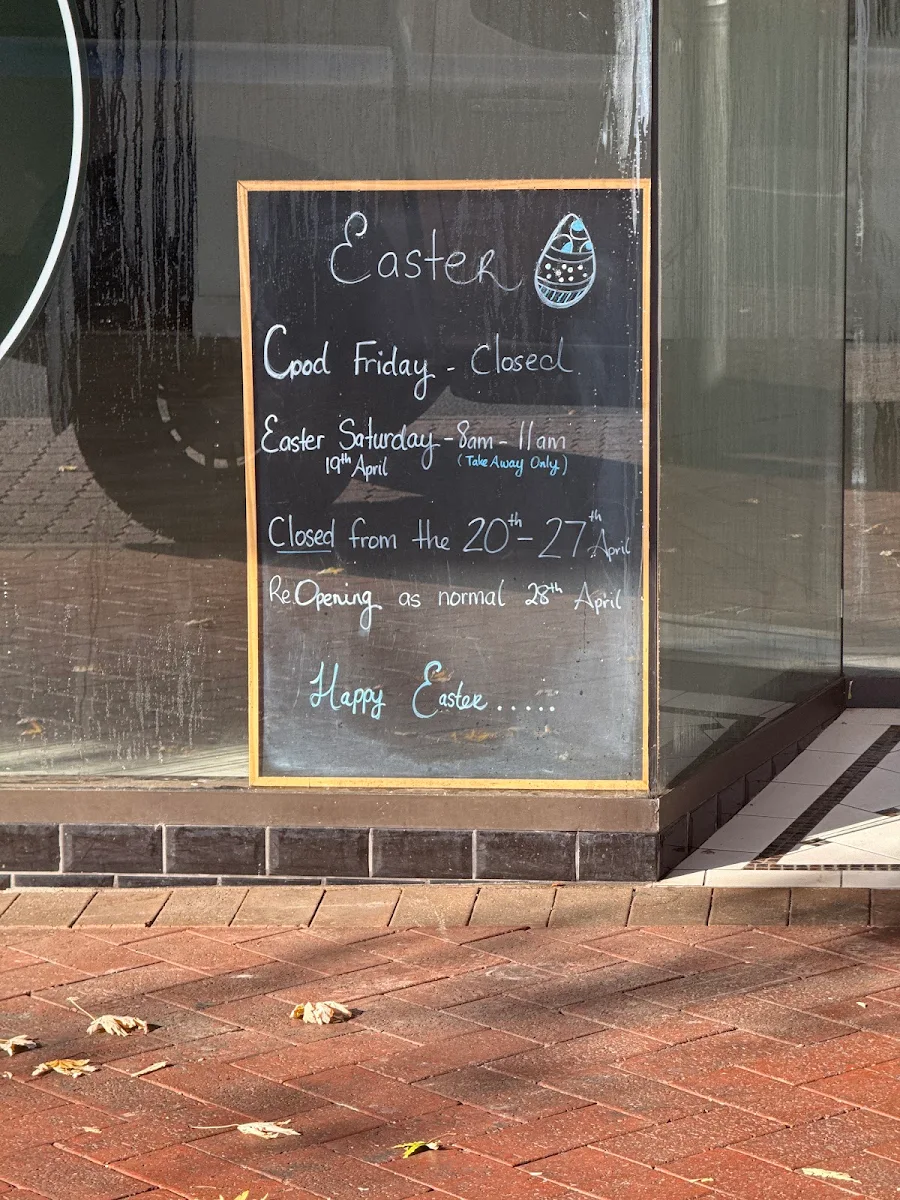 Easter
Good Friday - Closed.
Easter Saturday - 8am - 11am
19th April (Take Away Only)
Closed from the 20th - 27th April
Re.Opening as normal 28th April
Happy Easter.....